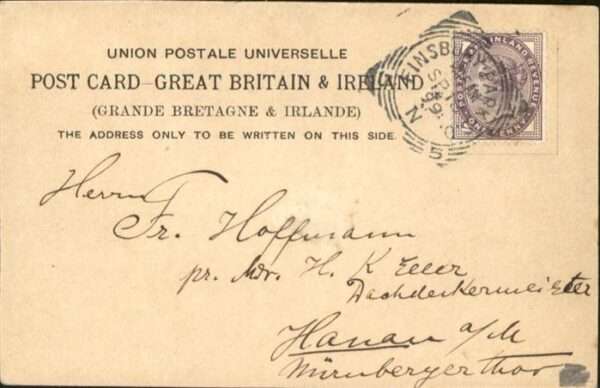 UNION POSTALE UNIVERSELLE
POST CARD-GREAT BRITAIN & IRELAND
(GRANDE BRETAGNE & IRLANDE)
THE ADDRESS ONLY TO BE WRITTEN ON THIS SIDE.
FINSBURY PARK
SP
99
N
5
INLAND REVENUE
Herrn
Fr. Hoffmann
pr. Adr. H. K Eller
Dachdeckermeister
Hanau a/M
Nürnbergerthor